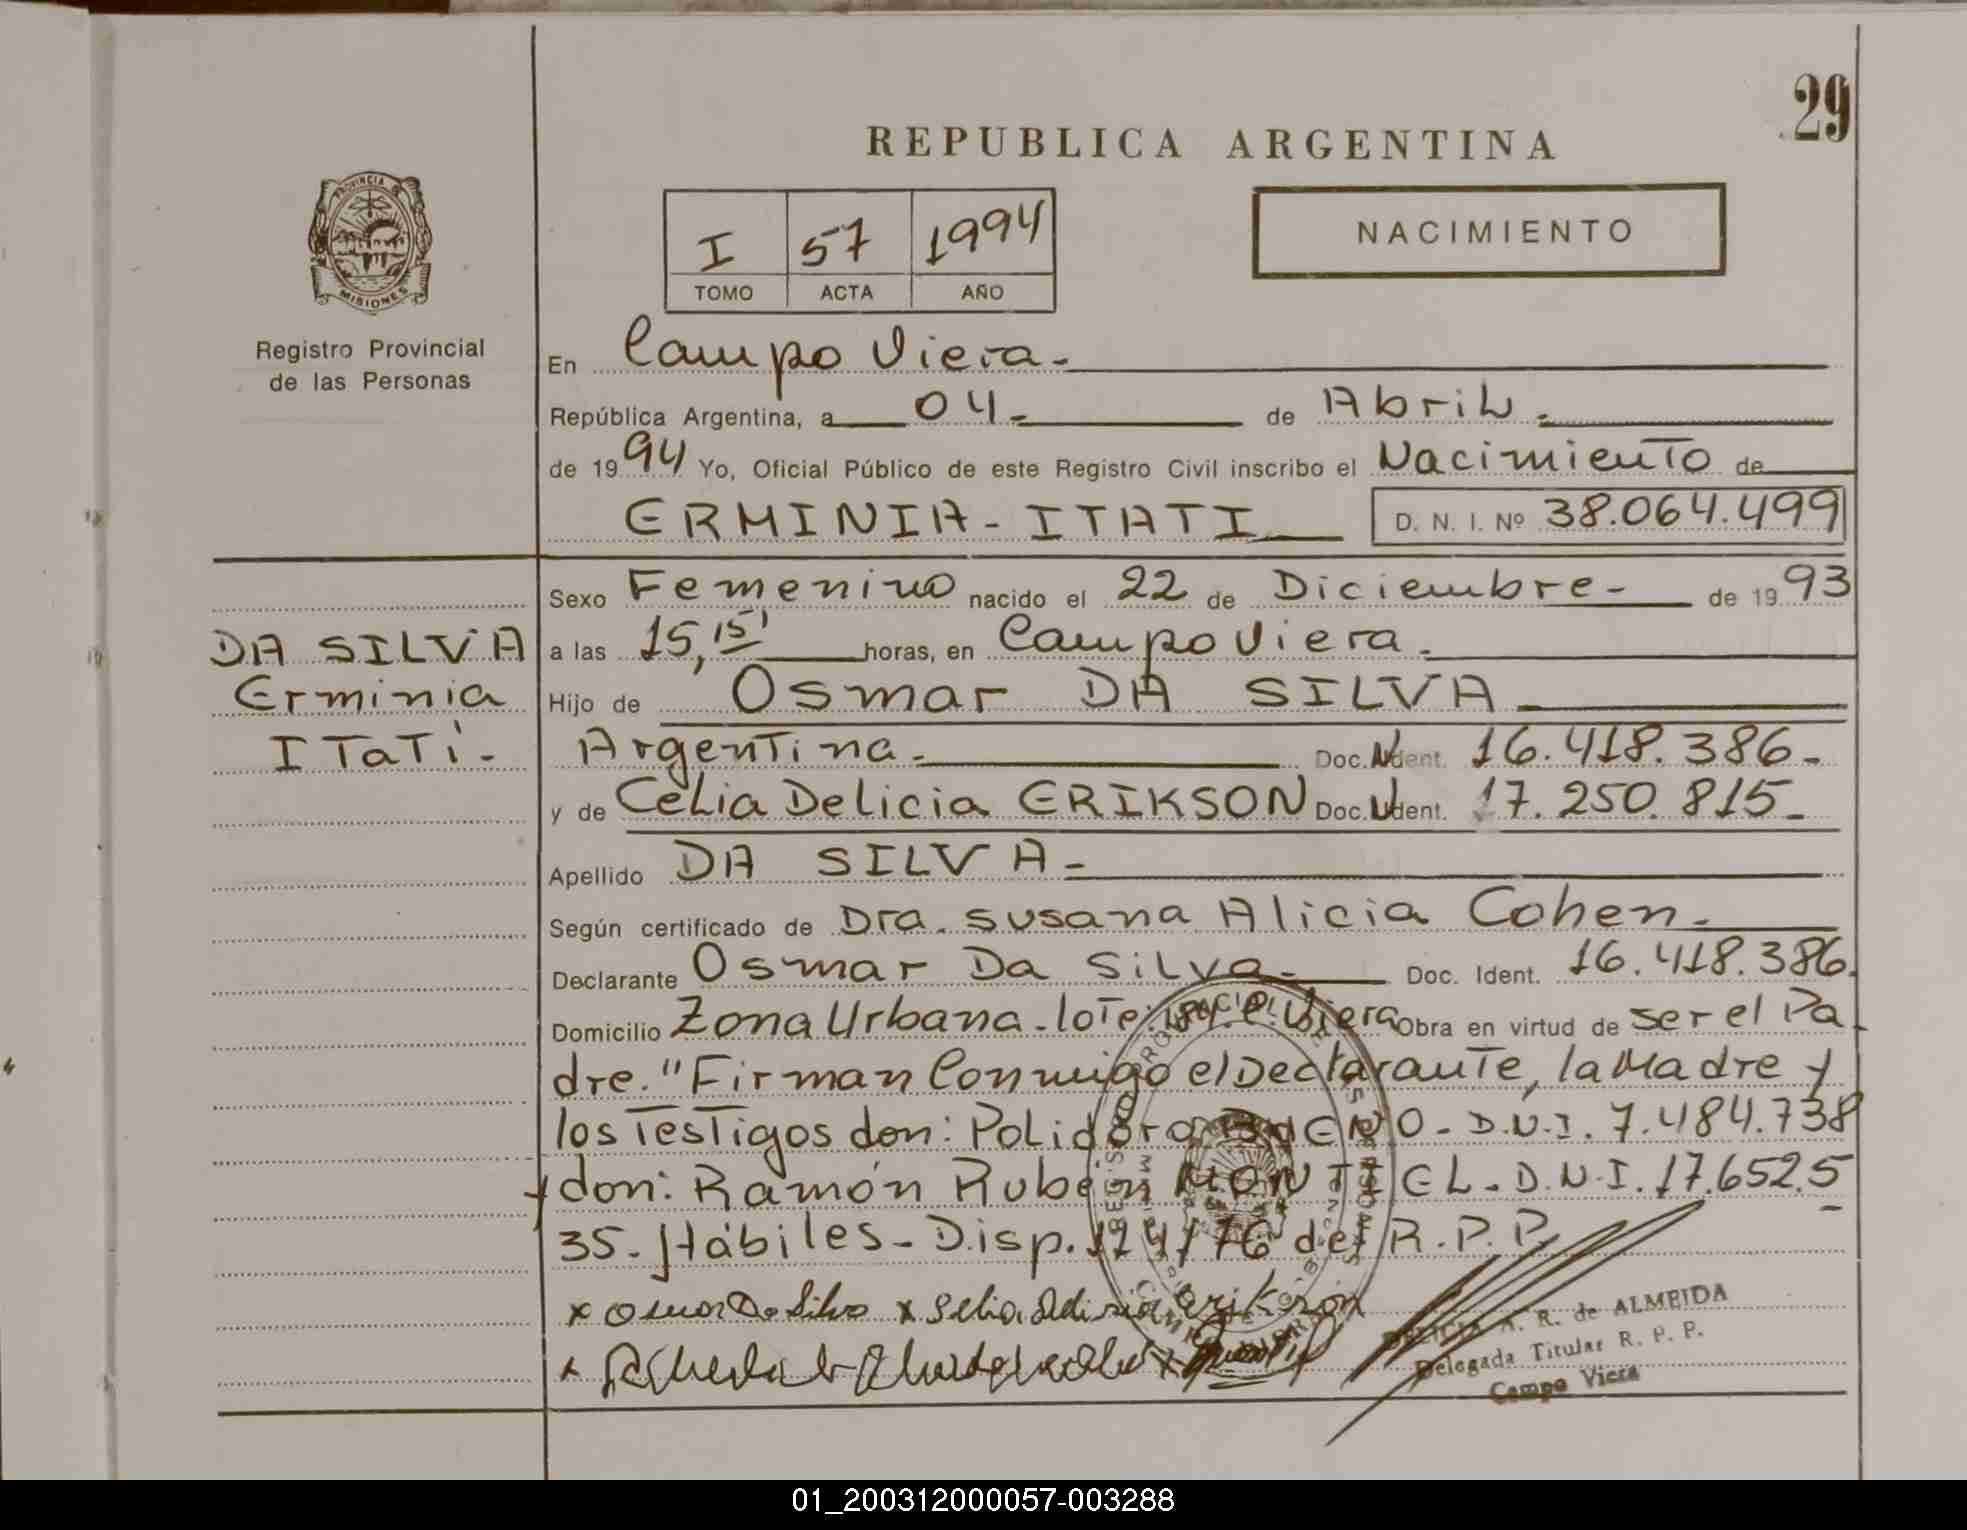 29
REPUBLICA ARGENTINA
PROVINCIA DE
MISIONES
Registro Provincial
de las Personas
I 57 1994
TOMO ACTA AÑO
NACIMIENTO
En Campo Viera.
República Argentina, a 04 de Abril
de 1994 Yo, Oficial Público de este Registro Civil inscribo el Nacimiento de
ERMINIA - ITATI D. N. I. Nº 38.064.499
Sexo Femenino nacido el 22 de Diciembre - de 1993
DA SILVA
Erminia
ITaTí.
a las 15,15' horas, en Campo Viera.
Hijo de Osmar DA SILVA
Argentina. Doc. Ident. 16.418.386.
y de Celia Delicia ERIKSON Doc. Ident. 17.250.815.
Apellido DA SILVA -
Según certificado de Dra. Susana Alicia Cohen.
Declarante Osmar Da Silva. Doc. Ident. 16.418.386.
Domicilio Zona Urbana. lote: Viera Obra en virtud de ser el Pa
dre. "Firman Conmigo el Declarante, la Madre y
los Testigos don: Polidoro - D.N.I. 7.484.738
y don: Ramón Rubén MONTIEL. D.N.I. 17.652.5
35. Hábiles - Disp. 124/76 del R.P.P.
x Osmar Da Silva x Selia Delisia Erikson
A. R. de ALMEIDA
Delegada Titular R. P. P.
Campo Viera
01_200312000057-003288